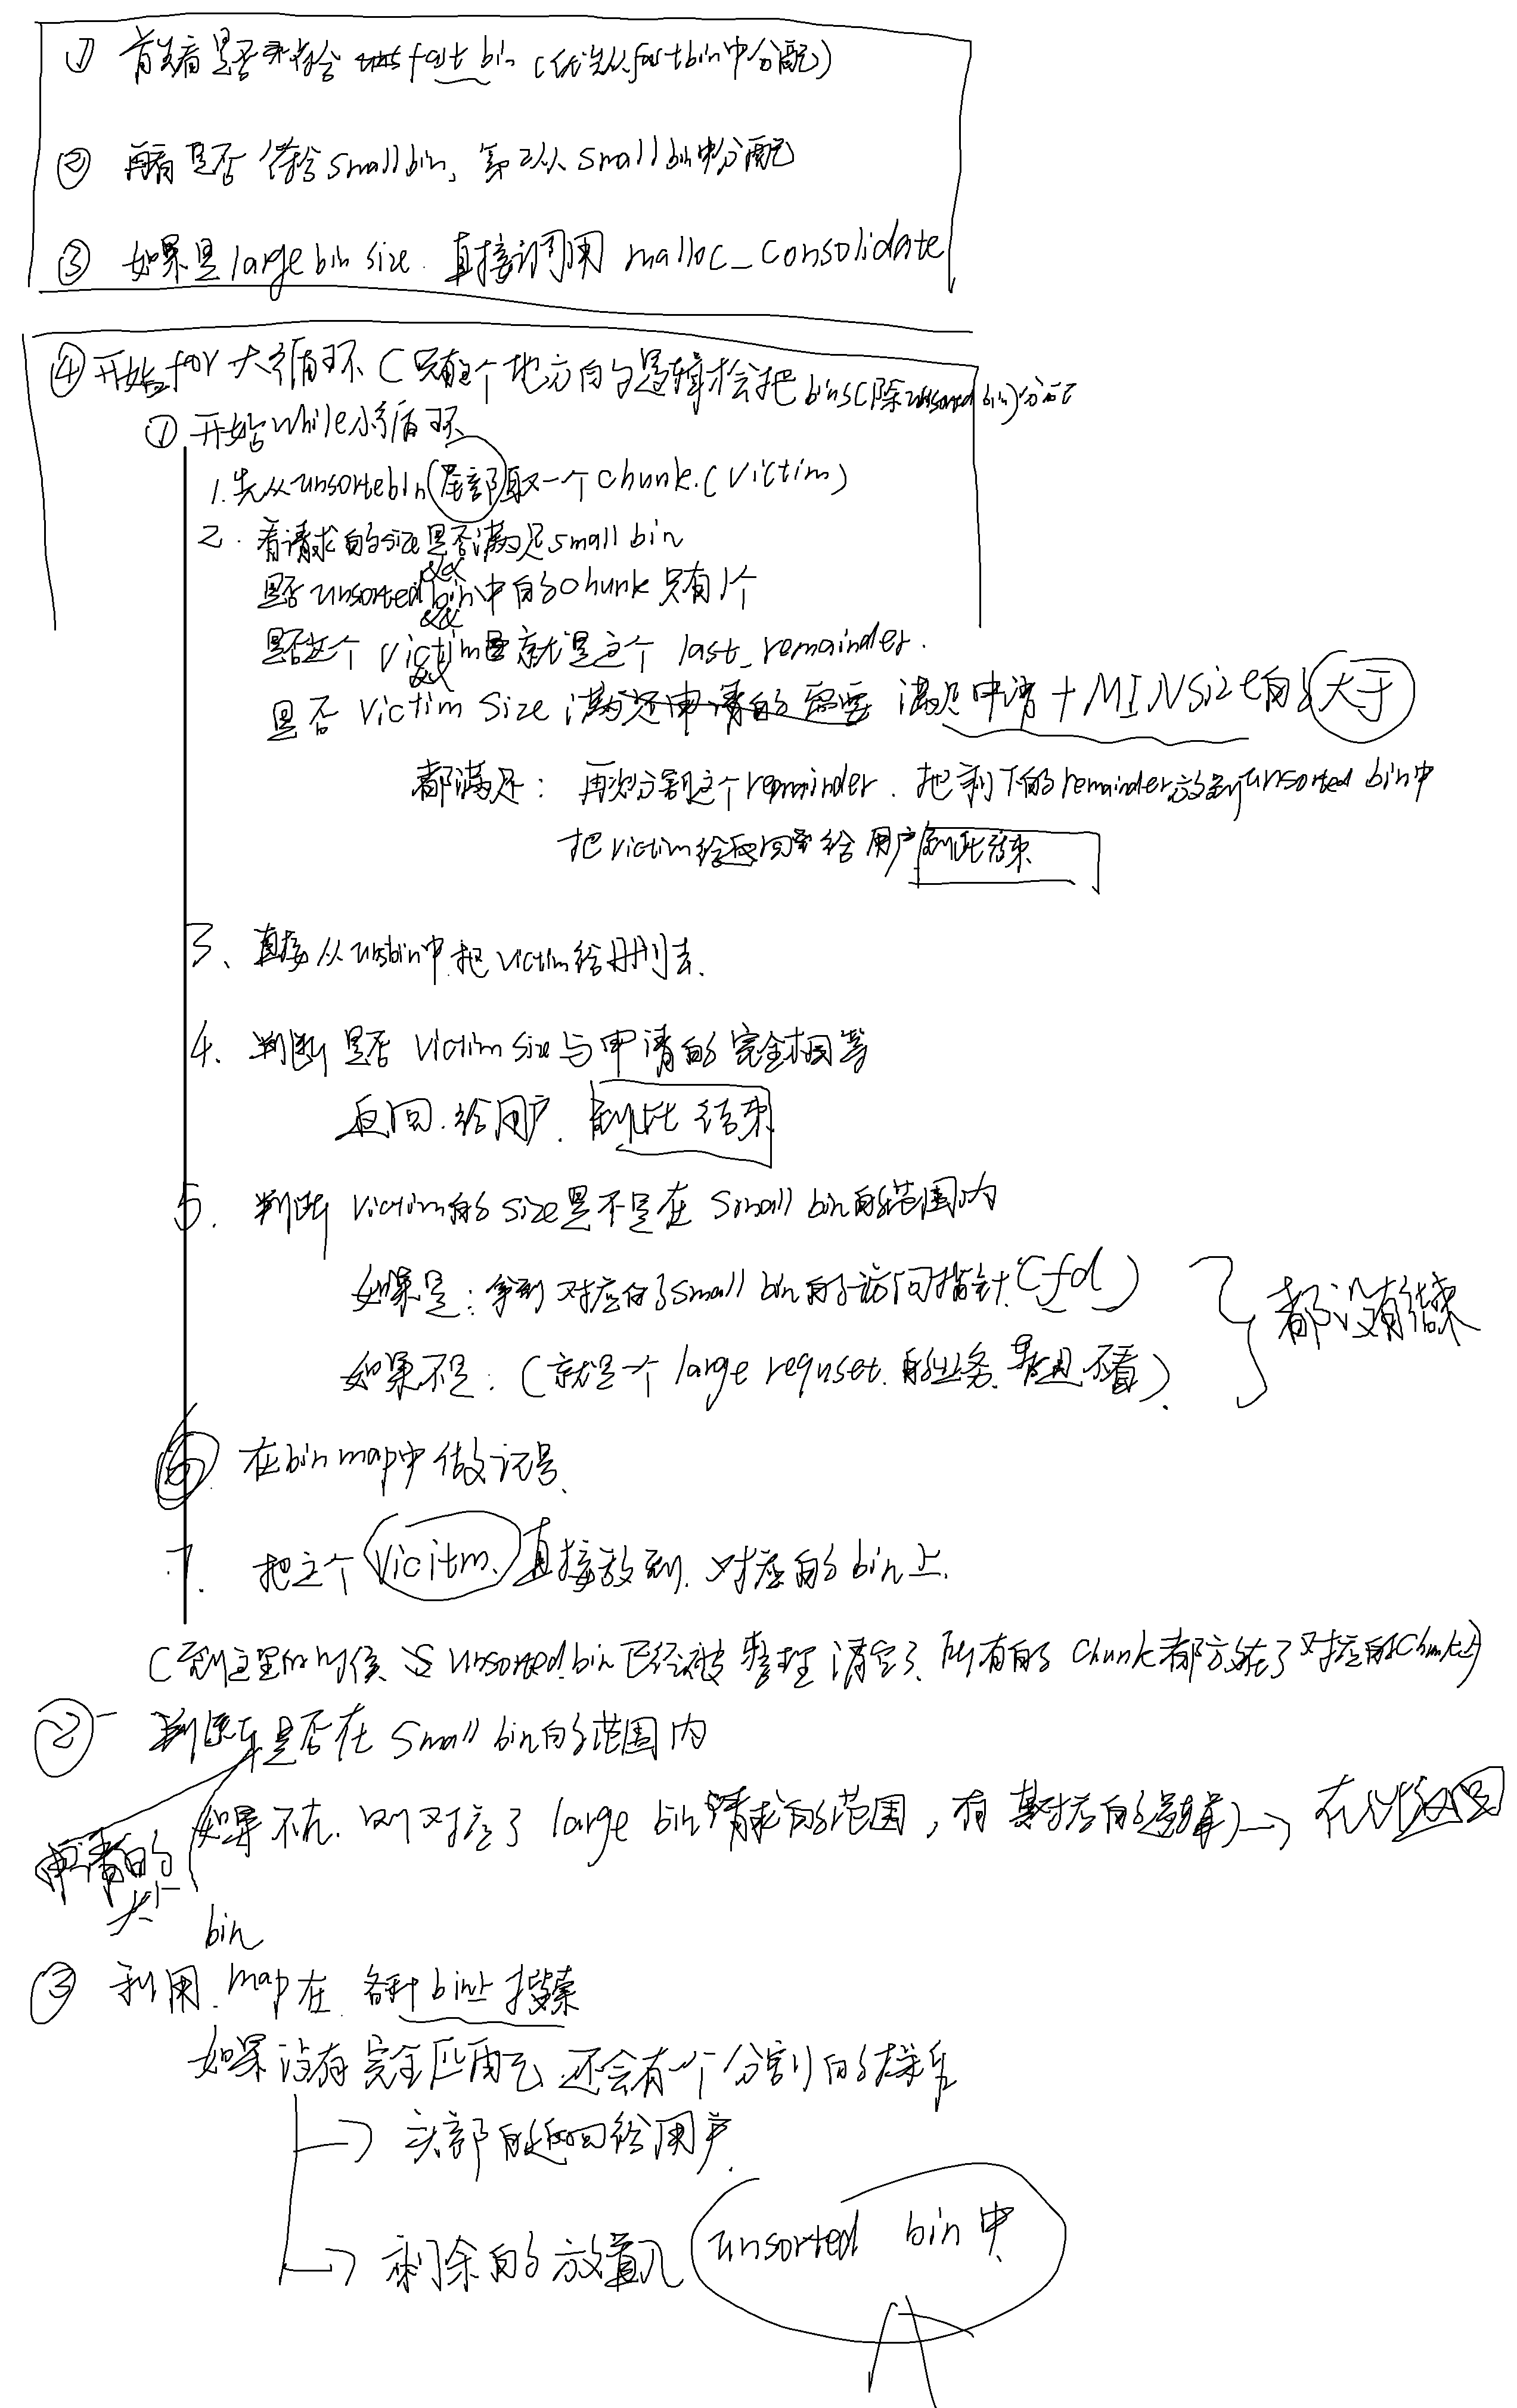 ① 首先看是否符合 fast bin (优先从fastbin中分配)
② 再看是否符合small bin, 第二从small bin中分配
③ 如果是large bin size. 直接调用 malloc_consolidate
④ 开始for大循环 (只有这个地方的逻辑才会把bins(除unsorted bin)分配
① 开始while小循环
1. 先从unsortebin(尾部)取一个chunk.(victim)
2. 看请求的size是否满足small bin
&&
是否unsorted bin中的chunk只有1个
&&
是否这个victim就是这个last_remainder.
&&
是否victim size 满足申请+MINsize的大于
都满足: 再次分割这个remainder. 把剩下的remainder放到unsorted bin中
把victim给返回给用户 到此结束
3、直接从unsbin中把victim给删去.
4. 判断是否victim size与申请的完全相等
返回给用户. 到此结束
5. 判断victim的size是不是在small bin的范围内
如果是: 拿到对应的small bin的访问指针(fd)
如果不是: (就是一个large requset.的业务. 暂且不看).
都没有结束
6 在bin map中做记号.
7. 把这个vicitm.直接放到.对应的bin上.
(到这里的时候, unsorted bin已经被整理清空了, 所有的chunk都放在了对应的chunk上)
② 判断是否在small bin的范围内
申请的大小
(如果不在. 则对应了large bin请求的范围, 有其对应的逻辑) → 在此返回
③ 利用 bin map在 各种bin上搜索
如果没有完全匹配 还会有一个分割的操作
→ 头部的返回给用户.
→ 剩余的放置入 unsorted bin中